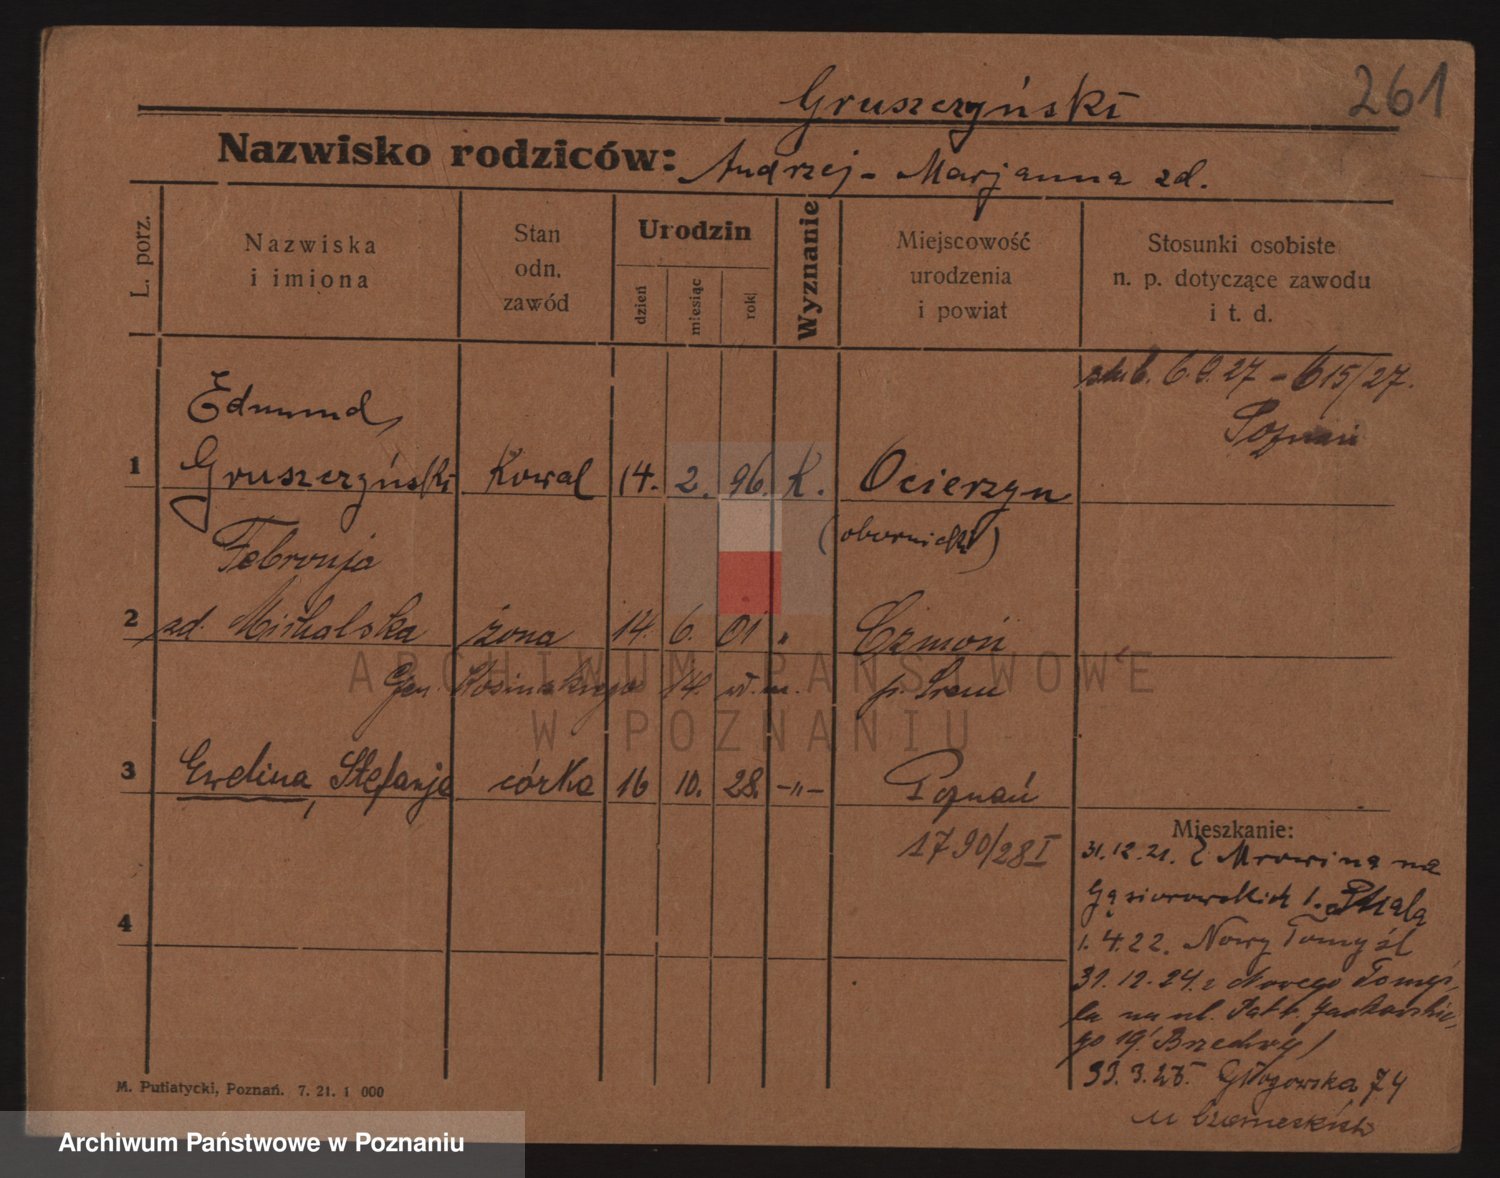 261
Gruszczyński
Nazwisko rodziców: Andrzej - Marjanna zd.
L. porz.
Nazwiska
i imiona
Stan
odn.
zawód
Urodzin
dzień
miesiąc
rok
Wyznanie
Miejscowość
urodzenia
i powiat
Stosunki osobiste
n. p. dotyczące zawodu
i t. d.
ślub. 6.9.27 - 615/27.
Poznań
Edmund
1 Gruszczyński Kowal 14. 2. 96. K. Ocierzyn
(obornicki)
Febronja
2 zd. Michalska żona 14. 6. 01 " Czmoń
Gen. Kosińskiego 14. p. Śrem
3 Ewelina, Stefanja córka 16 10. 28. -"- Poznań
1790/28 I
4
Mieszkanie:
31.12.21. z Mrowina na
Gąsiorowskich 1.
1.4.22. Nowy Tomyśl
31.12.24. z Nowego Tomyś-
la na ul. Patr. Jackowskie-
go 19
Głogowska 74
M. Putiatycki, Poznań. 7. 21. 1 000
ARCHIWUM PAŃSTWOWE
W POZNANIU
Archiwum Państwowe w Poznaniu